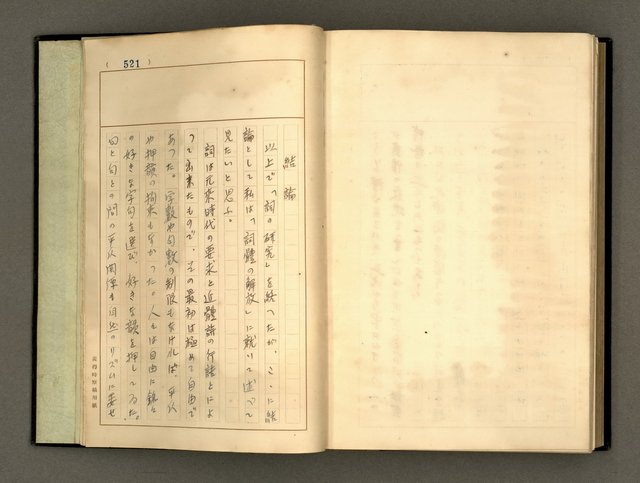 ( 521 )
結論
以上で「詞の研究」を終つたが、ここに結
論として私は「詞體の解放」に就いて述べて
見たいと思ふ。
詞は元來時代の要求と近體詩の行詰とによ
つて出來たもので、その最初は極めて自由で
あつた。字數や句數の制限もなければ、平仄
や押韻の拘束もなかつた。人々は自由に
の好きな字句を選び、好きな韻を押してゐた。
句と句との間の平仄関係も自然のリズムに委せ